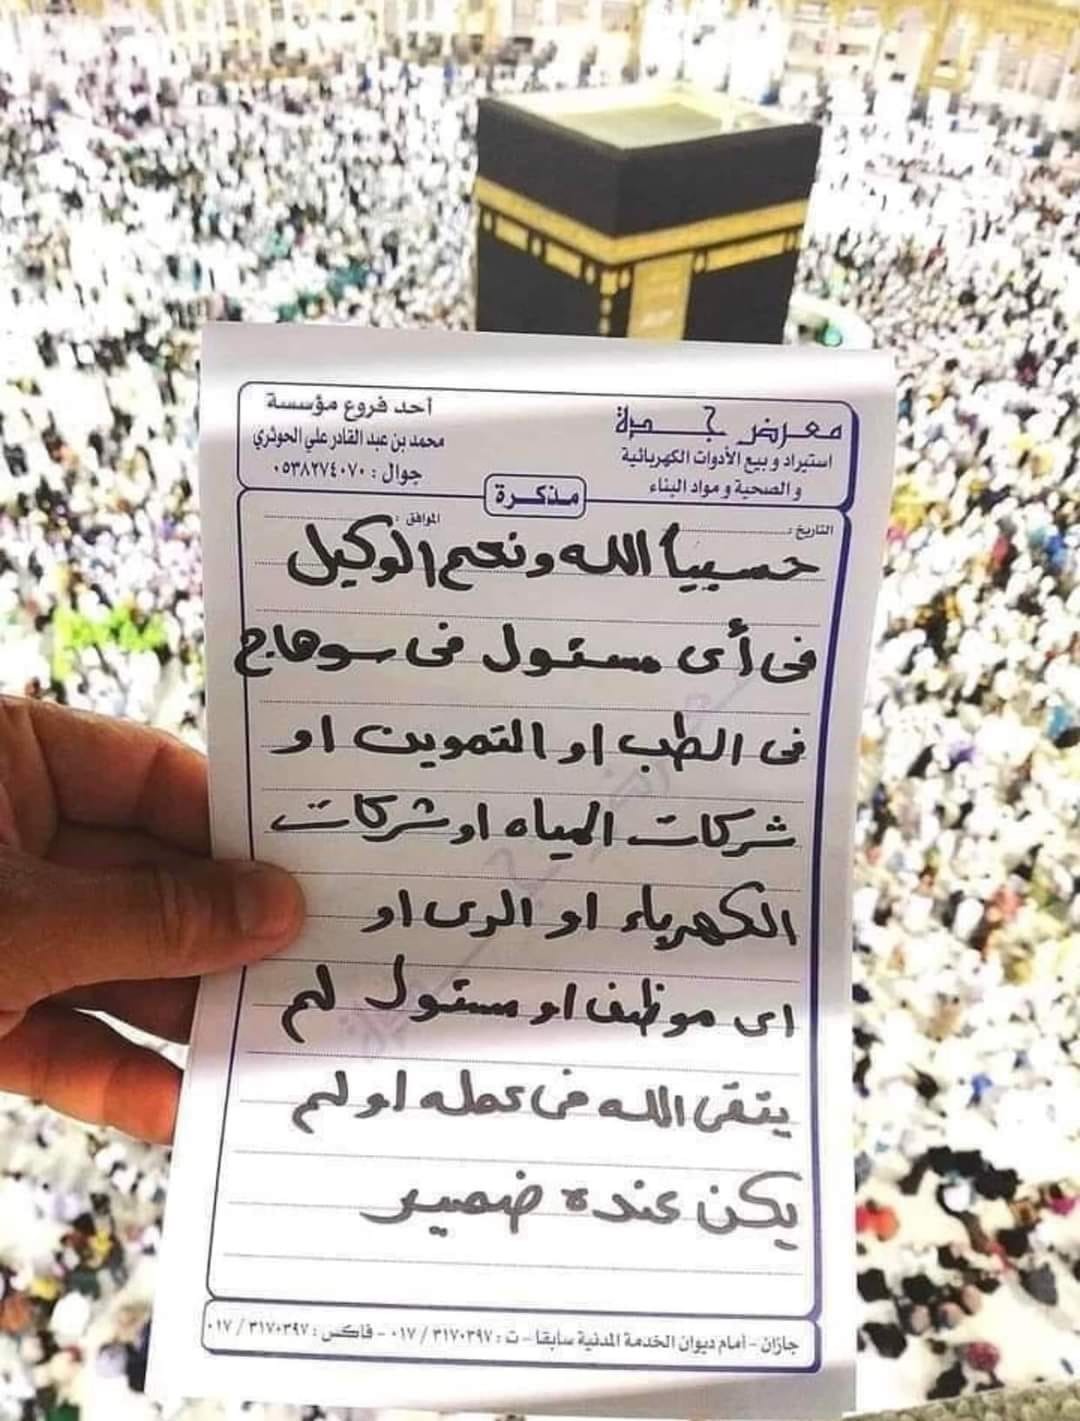 معرض جدة
استيراد و بيع الأدوات الكهربائية
والصحية و مواد البناء
أحد فروع مؤسسة
محمد بن عبد القادر علي الحوثري
جوال : ٠٥٣٨٢٧٤٠٧٠
مذكرة
التاريخ :
الموافق :
حسبيا الله ونعم الوكيل
فى أى مسئول فى سوهاج
فى الطب او التموين او
شركات المياه او شركات
الكهرباء او الرى او
اى موظف او مسئول لم
يتقى الله فى عمله او لم
يكن عنده ضمير
جازان - أمام ديوان الخدمة المدنية سابقا - ت : ٣١٧٠٣٩٧ / ٠١٧ - فاكس : ٣١٧٠٣٩٧ / ٠١٧
معرض جدة